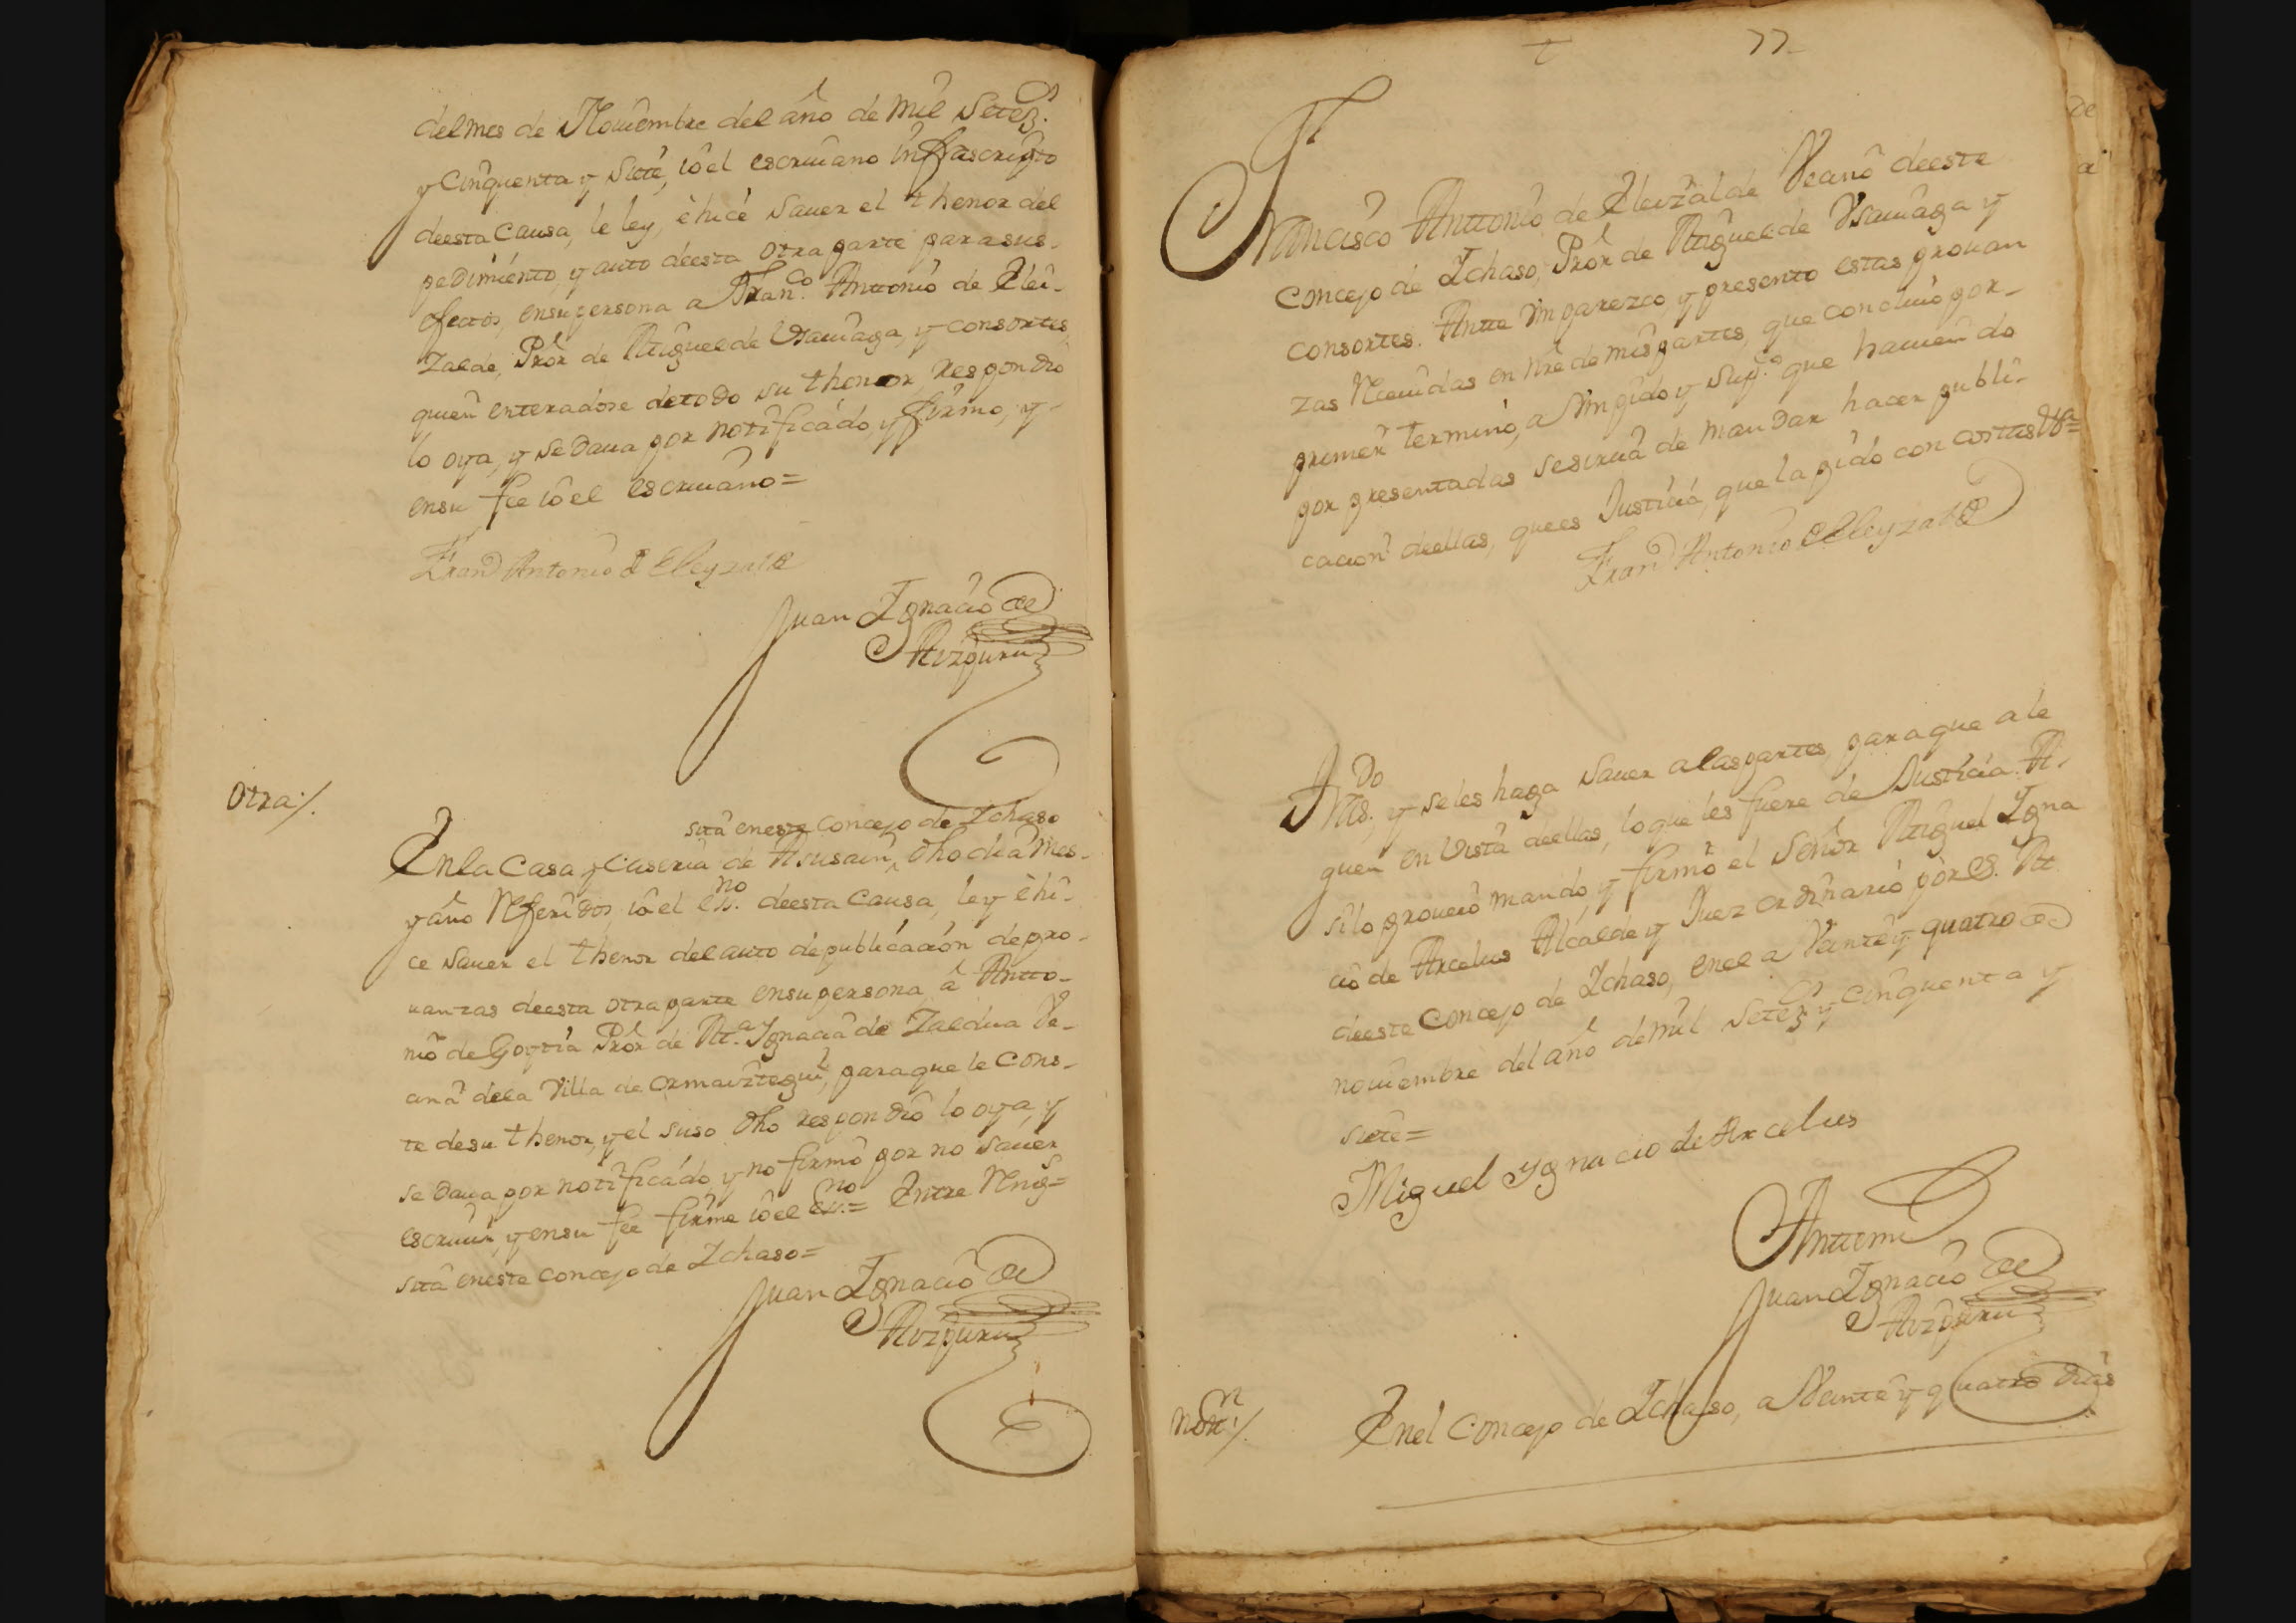 del mes de Nouiembre del año de mil Setez.s
y Cinquenta y Siete, io el escriuano infrascripto
deesta Causa, le ley, è hice Sauer el thenor del
pedimiento y auto deesta otra parte para sus
efectos, en su persona a Fran.co Anttonio de Elei-
zalde, Pror de Miguel de Vsauiaga, y consortes,
quien enteradose de todo su thenor, Respondio
lo oya, y se Daua por notificado, y firmo, y
en su fee io el escriuano=
Fran.co Antonio de Eleyzalde
Juan Ignacio de
Aozpuru
Otra:/.
sita en este concejo de Ichaso
En la Casa y Caseria de Asusain, dho dia mes-
y año Referidos, io el Es.no deesta Causa, ley è hi-
ce Sauer el thenor del auto de publicacion de pro-
uanzas deesta otra parte en su persona, â Antto-
nio de Goytia Pror de M.a Ignacia de Zaldua Ve-
cina dela Villa de Ormaiztegui, para que le Cons-
te de su thenor, y el suso dho respondio lo oya, y
se Daua por notificado, y no firmò por no Sauer
escriuir, y en su fee firme io el Es.no= Entre Reng.s=
sita en este concejo de Ichaso=
Juan Ignacio de
Aozpuru
t 77
Francisco Anttonio de Eleizalde Vecino deeste
Concejo de Ichaso, Pror de Miguel de Vsauiaga y
consortes. Antte Vm parezco, y presento estas prouan
zas Receuidas en nre de mis partes, que concluio por-
primer termino, a Vm pido y Sup.co que hauiendo
por presentadas se sirua de mandar hacer publi-
cacion deellas, que es Justicia, que la pido con costas Vª=
Fran.co Antonio de Eleyzalde
A.do
Ntos; y se les haga Sauer alas partes, para que ale
guen en Vista deellas, lo que les fuere de Justicia. A-
si lo proueio mando, y firmò el Señor Miguel Igna
cio de Arcelus Alcalde y Juez ordinario por S. M
deeste Concejo de Ichaso, en el a Veinte y quatro de
nouiembre del año de mil Setez.s y Cinquenta y
siete=
Miguel Ygnacio de Arcelus
Antte mi
Juan Ignacio de
Aozpuru
Not.n:/.
En el Concejo de Ichaso, a Veinte y quatro dias